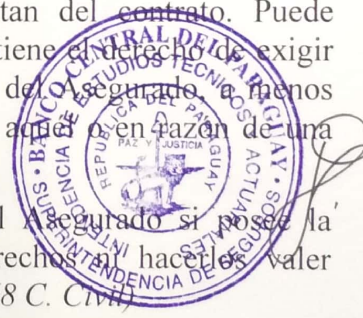 tan del contrato. Puede
tiene el derecho de exigir
del Asegurado, a menos
aquel o en razón de una
l Asegurado si posee la
rechos ni hacerlos valer
8 C. Civil)
BANCO CENTRAL DEL PARAGUAY
SUPERINTENDENCIA DE SEGUROS
INTENDENCIA DE ESTUDIOS TECNICOS ACTUARIALES
REPUBLICA DEL PARAGUAY
PAZ Y JUSTICIA